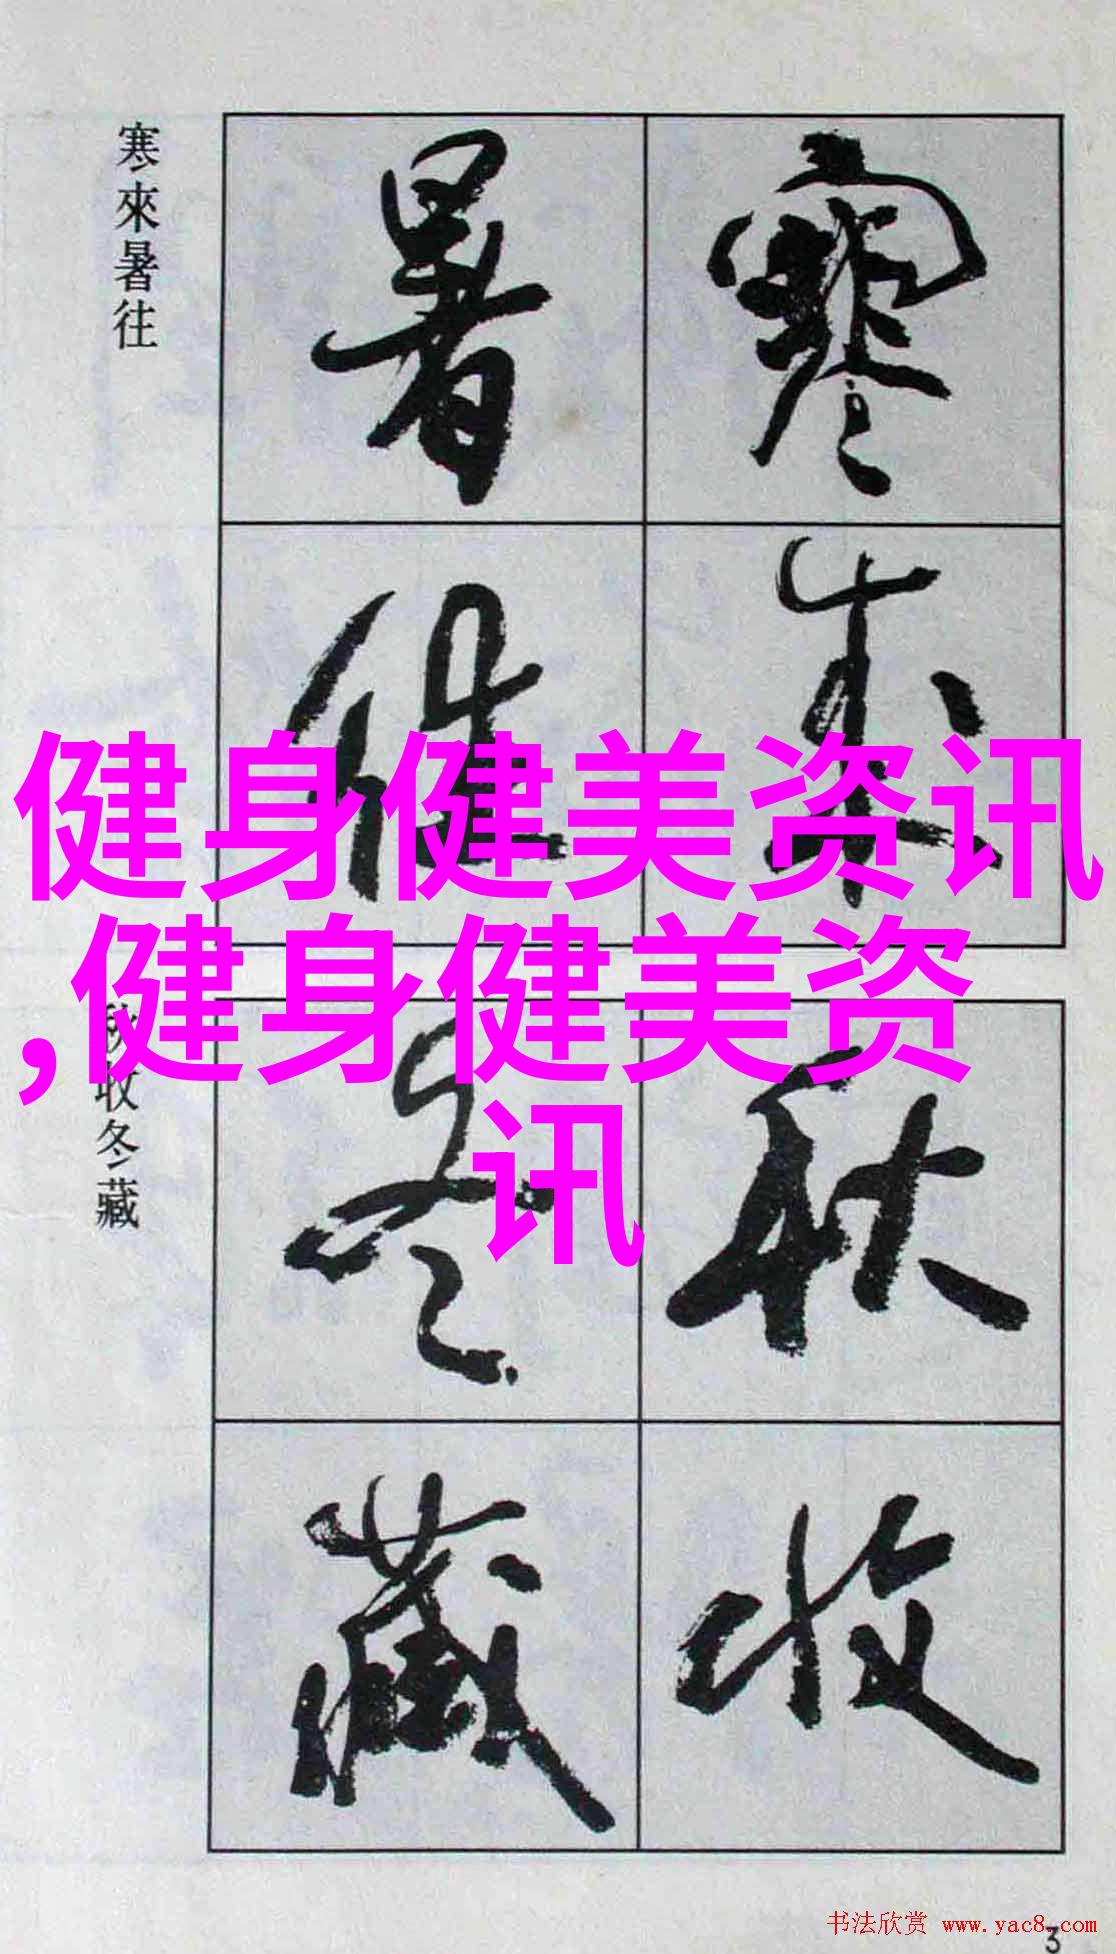 寒來暑往
寒來
暑往
健身健美资讯
,健身健美资
讯
秋收冬藏
秋收
冬藏
书法欣赏 www.yac8.com
3